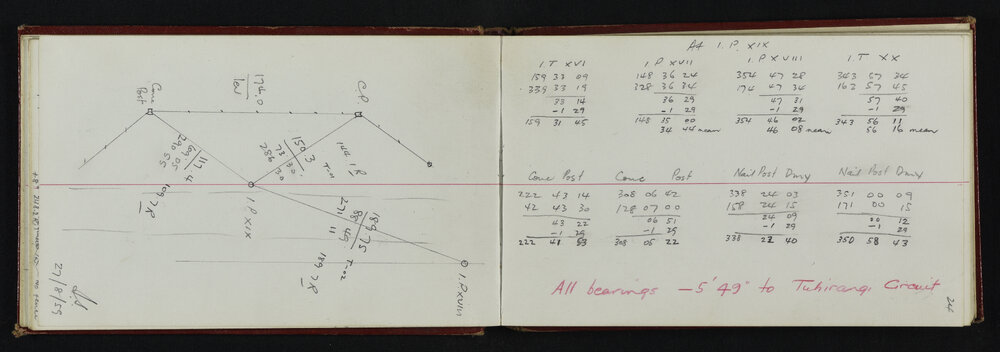 Conc
Post
174.0
C.P.
150.3
73 30
286 30
T-M
117.4
69 05
290 55
I.P XIX
189.75
88 49
271 11
T-02
I.P XVIII
27/8/59
At I. P. XIX
I T XVI I. P XVII I. P XVIII I. T XX
159 33 09 148 36 24 354 47 28 343 57 34
339 33 19 328 36 34 174 47 34 163 57 45
33 14 36 29 47 31 57 40
-1 29 -1 29 -1 29 -1 29
159 31 45 148 35 00 354 46 02 343 56 11
34 44 mean 46 08 mean 56 16 mean
Conc Post Conc Post Nail Post Dmy Nail Post Dmy
222 43 14 308 06 42 338 24 03 351 00 09
42 43 30 128 07 00 158 24 15 171 00 15
43 22 06 51 24 09 00 12
-1 29 -1 29 -1 29 -1 29
222 41 53 308 05 22 338 22 40 350 58 43
All bearings - 5' 49" to Tuhirangi Circuit
24